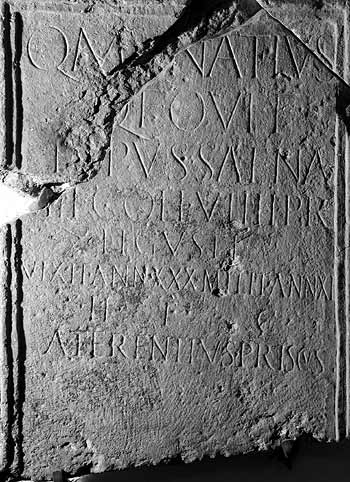 Q M NATIVS
QVIR
LVPVS SALNA
MIL COH VIIII PR
LIGVSTI
VIXIT ANN XXX MILIT ANN XI
H F C
A TERENTIVS PRISCVS